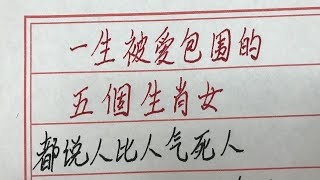 一生被爱包围的
五個生肖女
都说人比人气死人